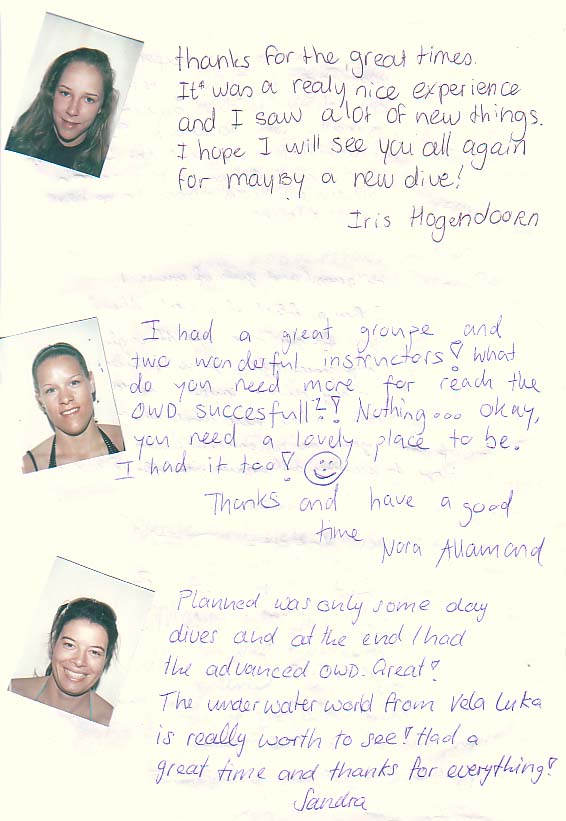 thanks for the great times.
It was a realy nice experience
and I saw alot of new things.
I hope I will see you all again
for mayby a new dive!
Iris Hogendoorn
I had a great groupe and
two wonderful instructors! What
do you need more for reach the
OWD succesfull?! Nothing... okay,
you need a lovely place to be.
I had it too! ☺
Thanks and have a good
time
Nora Allamand
Planned was only some day
dives and at the end I had
the advanced OWD. Great!
The underwaterworld from Vela Luka
is really worth to see! Had a
great time and thanks for everything!
Sandra